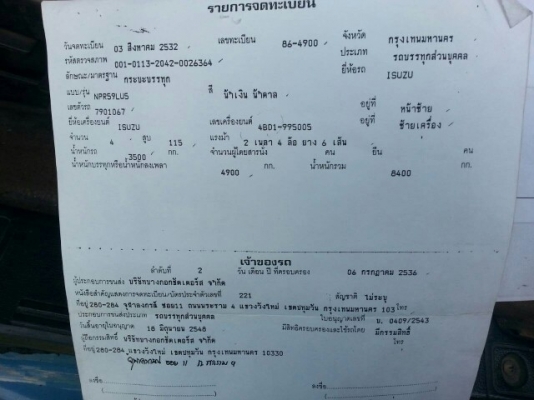 รายการจดทะเบียน
วันจดทะเบียน 03 สิงหาคม 2532 เลขทะเบียน 86-4900 จังหวัด กรุงเทพมหานคร
รหัสตรวจสภาพ 001-0113-2042-0026364 ประเภท รถบรรทุกส่วนบุคคล
ลักษณะ/มาตรฐาน กระบะบรรทุก ยี่ห้อรถ ISUZU
แบบ/รุ่น NPR59LUS สี น้ำเงิน น้ำตาล
เลขตัวรถ 7901067 อยู่ที่ หน้าซ้าย
ยี่ห้อเครื่องยนต์ ISUZU เลขเครื่องยนต์ 4BD1-995005 อยู่ที่ ซ้ายเครื่อง
จำนวน 4 สูบ 115 แรงม้า 2 เพลา 4 ล้อ ยาง 6 เส้น
น้ำหนักรถ 3500 กก. จำนวนผู้โดยสารนั่ง คน ยืน คน
น้ำหนักบรรทุกหรือน้ำหนักลงเพลา 4900 กก. น้ำหนักรวม 8400 กก.
เจ้าของรถ
ลำดับที่ 2 วัน เดือน ปี ที่ครอบครอง 06 กรกฎาคม 2536
ผู้ประกอบการขนส่ง บริษัทบางกอกชีตเตอร์ส จำกัด
หนังสือสำคัญแสดงการจดทะเบียน/บัตรประจำตัวเลขที่ 221 สัญชาติ ไม่ระบุ
ที่อยู่ 280-284 จุฬาลงกรณ์ ซอย11 ถนนพระราม 4 แขวงวังใหม่ เขตปทุมวัน กรุงเทพมหานคร 103 โทร
ประกอบการขนส่งประเภท รถบรรทุกส่วนบุคคล ใบอนุญาตเลขที่ บ. 0409/2543
วันสิ้นอายุใบอนุญาต 18 มิถุนายน 2548 มีสิทธิครอบครองและใช้รถโดย มีกรรมสิทธิ์
ผู้ถือกรรมสิทธิ์ โทร
ที่อยู่ 280-284 แขวงวังใหม่ เขตปทุมวัน กรุงเทพมหานคร 10330
ลงชื่อ ลงชื่อ